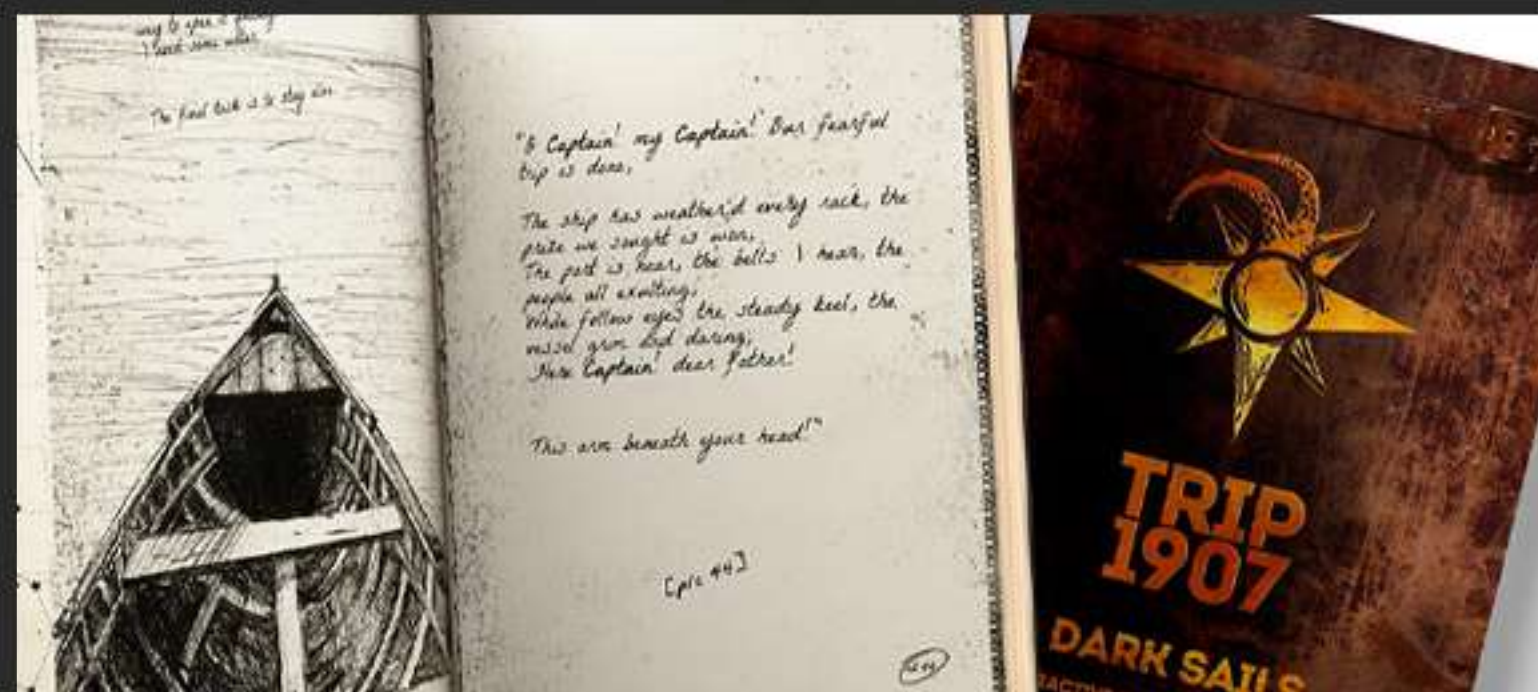 I need some water
The hard task is to stay
"O Captain! my Captain! Our fearful
trip is done,
The ship has weather'd every rack, the
prize we sought is won,
The port is near, the bells I hear, the
people all exulting,
While follow eyes the steady keel, the
vessel grim and daring,
Here Captain! dear Father!
This arm beneath your head!"
[pic 44]
TRIP
1907
DARK SAILS